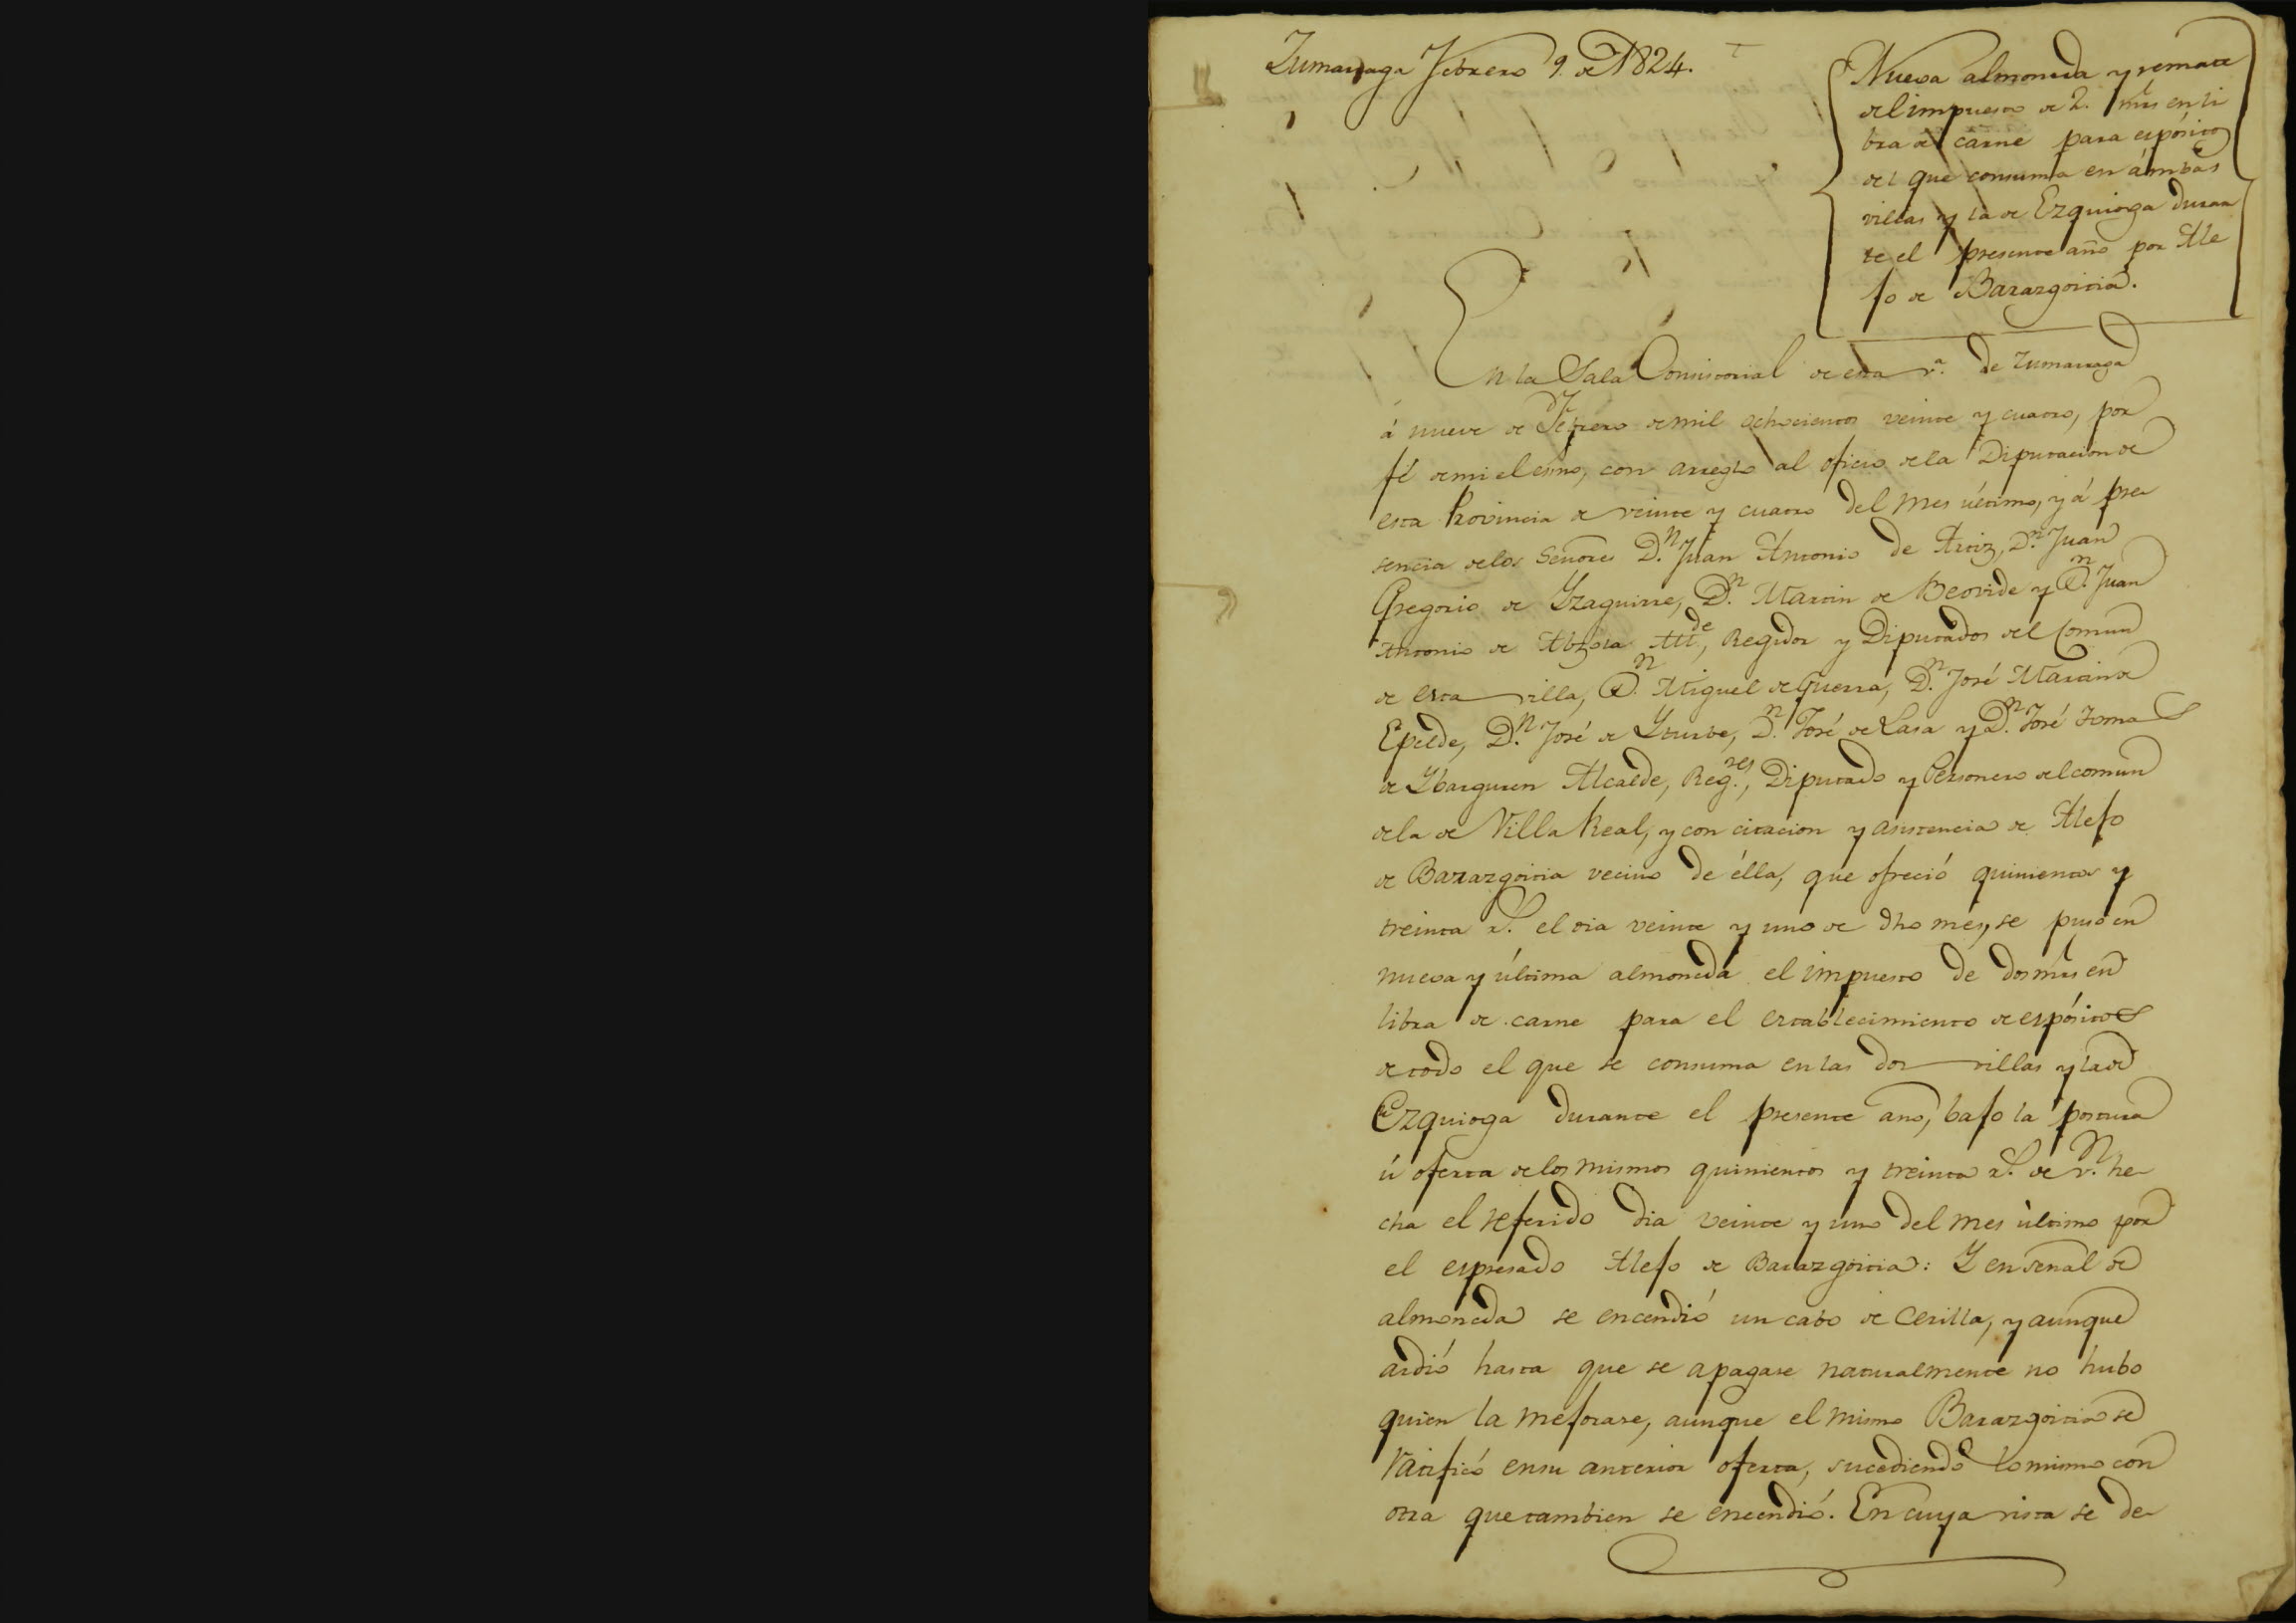 Zumarraga Febrero 9. de 1824.
Nueva almoneda y remate
del impuesto de 2. mrs en li
bra de carne para espósitos
del que consuma en ámbas
villas y la de Ezquioga duran
te el presente año por Ale
jo de Barazgoitia.
En la Sala Consistorial de esta v.ª de Zumarraga
á nueve de Febrero de mil ochocientos veinte y cuatro, por
fé de mi el esno, con arreglo al oficio de la Diputacion de
esta Provincia de veinte y cuatro del mes último, y á pre
sencia de los Señores D.n Juan Antonio de Artiz, D.n Juan
Gregorio de Yzaguirre, D.n Martin de Beovide y D.n Juan
Antonio de Alzola Alde, Regidor y Diputados del Comun
de esta villa, D.n Miguel de Guerra, D.n José Maria de
Epelde, D.n José de Yturbe, D.n José de Lasa y D.n José Tomas
de Ybarguren Alcalde, Reg.res, Diputado y Personero del comun
de la de Villa Real, y con citacion y asistencia de Alejo
de Barazgoitia vecino de élla, que ofreció quinientos y
treinta r.s el dia veinte y uno de dho mes, se puso en
nueva y última almoneda el impuesto de dos mrs en
libra de carne para el establecimiento de espósitos
de todo el que se consuma en las dos villas y la de
Ezquioga durante el presente año, bajo la postura
ú oferta de los mismos quinientos y treinta r.s de v.n he
cha el referido dia veinte y uno del mes último por
el espresado Alejo de Barazgoitia: Y en señal de
almoneda se encendió un cabo de cerilla, y aunque
ardió hasta que se apagase naturalmente no hubo
quien la mejorase, aunque el mismo Barazgoitia se
ratificó en su anterior oferta, sucediendo lo mismo con
otra que tambien se encendió. En cuya vista se de